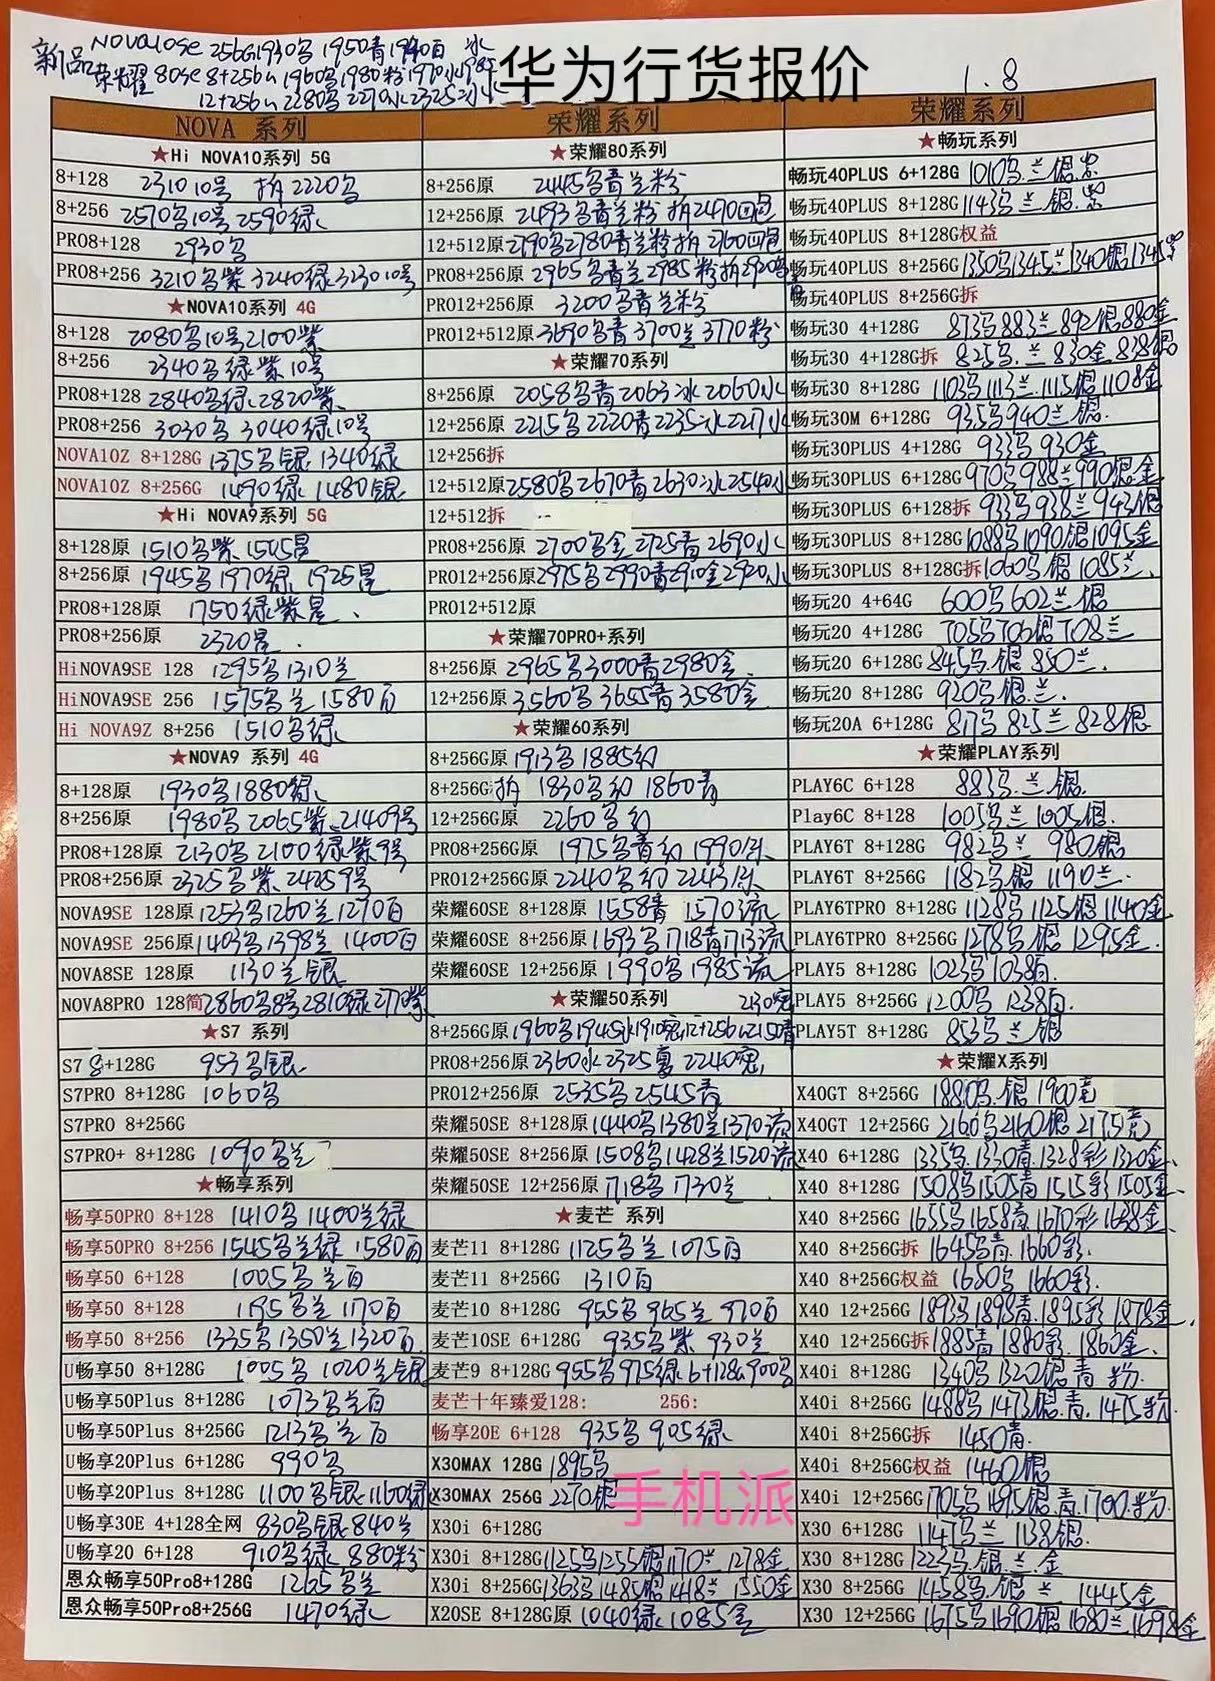 新品 NOVA10SE 256G1930乌 1950青1940白
荣耀80se 8+256G 1960乌1980粉1970水
12+256G 2280乌2270水2325冰
华为行货报价
1.8
NOVA 系列
★Hi NOVA10系列 5G
8+128 2310 10号 拆2220乌
8+256 2570乌10号 2590绿
PRO8+128 2930乌
PRO8+256 3210乌紫 3240绿 3230 10号
★NOVA10系列 4G
8+128 2080乌10号2100紫
8+256 2340乌绿紫10号
PRO8+128 2840乌绿2820紫
PRO8+256 3030乌 3040绿10号
NOVA10Z 8+128G 1375乌银 1340绿
NOVA10Z 8+256G 1490绿 1480银
★Hi NOVA9系列 5G
8+128原 1510乌紫 1505星
8+256原 1945乌1970绿 1925星
PRO8+128原 1750绿紫星
PRO8+256原 2320星
HiNOVA9SE 128 1295乌1310兰
HiNOVA9SE 256 1575乌兰1580白
Hi NOVA9Z 8+256 1510乌绿
★NOVA9 系列 4G
8+128原 1930乌1880绿
8+256原 1980乌2065紫 2140 9号
PRO8+128原 2130乌2100绿紫9号
PRO8+256原 2325乌紫 2425 9号
NOVA9SE 128原 1253乌1260兰1270白
NOVA9SE 256原 1403乌1398兰1400白
NOVA8SE 128原 1130兰银
NOVA8PRO 128简 2860乌8号2810绿2770紫
★S7 系列
S7 8+128G 953乌银
S7PRO 8+128G 1060乌
S7PRO 8+256G
S7PRO+ 8+128G 1090乌兰
★畅享系列
畅享50PRO 8+128 1410乌1400兰绿
畅享50PRO 8+256 1545乌兰绿 1580白
畅享50 6+128 1005乌兰白
畅享50 8+128 1195乌兰1170白
畅享50 8+256 1335乌1350兰1320白
U畅享50 8+128G 1005乌 1020兰银
U畅享50Plus 8+128G 1073乌兰白
U畅享50Plus 8+256G 1213乌兰白
U畅享20Plus 6+128G 990乌
U畅享20Plus 8+128G 1100乌银1160绿
U畅享30E 4+128全网 830乌银840兰
U畅享20 6+128 910乌绿 880粉
恩众畅享50Pro8+128G 1265乌兰
恩众畅享50Pro8+256G 1470绿
荣耀系列
★荣耀80系列
8+256原 2445乌青兰粉
12+256原 2493乌青兰粉 拆2470四包
12+512原 2790乌2780青兰粉拆 2760四包
PRO8+256原 2965乌青兰2985粉拆2930乌
PRO12+256原 3200乌青兰粉
PRO12+512原 3690乌青3700兰3770粉
★荣耀70系列
8+256原 2058乌青2063冰2060水
12+256原 2215乌2220青2235冰2217水
12+256拆
12+512原 2580乌2670青2630冰2540水
12+512拆 --
PRO8+256原 2700乌金2725青2690水
PRO12+256原 2975乌2990青2910金2920水
PRO12+512原
★荣耀70PRO+系列
8+256原 2965乌3000青2980金
12+256原 3560乌3655青3580金
★荣耀60系列
8+256G原 1913乌1885幻
8+256G 拆 1830乌幻 1860青
12+256G原 2260乌幻
PRO8+256G原 1975乌青幻1990休
PRO12+256G原 2240乌幻2243休
荣耀60SE 8+128原 1558青 1570流
荣耀60SE 8+256原 1693乌1718青1713流
荣耀60SE 12+256原 1990乌1985流
★荣耀50系列 2130宽
8+256G原 1960乌1945水1910宽12+256G2150青
PRO8+256原 2360水2325夏 2240宽
PRO12+256原 2535乌2545青
荣耀50SE 8+128原 1440乌1380兰1370流
荣耀50SE 8+256原 1508乌1428兰1520流
荣耀50SE 12+256原 1718乌1730兰
★麦芒 系列
麦芒11 8+128G 1125乌兰1075白
麦芒11 8+256G 1310白
麦芒10 8+128G 955乌965兰970白
麦芒10SE 6+128G 935乌紫 930兰
麦芒9 8+128G 955乌975绿6+128G900乌
麦芒十年臻爱128: 256:
畅享20E 6+128 935乌905绿
X30MAX 128G 1895乌
X30MAX 256G 2270银
X30i 6+128G
X30i 8+128G 1125乌1255银1170兰 1278金
X30i 8+256G 1363乌1485银1418兰1550金
X20SE 8+128G原 1040绿1085金
手机派
荣耀系列
★畅玩系列
畅玩40PLUS 6+128G 1010乌兰银紫
畅玩40PLUS 8+128G 1143乌兰银紫
畅玩40PLUS 8+128G权益
畅玩40PLUS 8+256G 1350乌1345兰1340银1345紫
畅玩40PLUS 8+256G拆
畅玩30 4+128G 873乌883兰892银880金
畅玩30 4+128G拆 825乌兰830金838银
畅玩30 8+128G 1103乌1113兰1115银1108金
畅玩30M 6+128G 935乌940兰银
畅玩30PLUS 4+128G 933乌930金
畅玩30PLUS 6+128G 970乌988兰990银金
畅玩30PLUS 6+128拆 933乌938兰943银
畅玩30PLUS 8+128G 1088乌1090银1095金
畅玩30PLUS 8+128G拆 1060乌银1085兰
畅玩20 4+64G 600乌602兰银
畅玩20 4+128G 705乌706银708兰
畅玩20 6+128G 845乌银850兰
畅玩20 8+128G 920乌银兰
畅玩20A 6+128G 817乌825兰828银
★荣耀PLAY系列
PLAY6C 6+128 883乌兰银
Play6C 8+128 1005乌兰1005银
PLAY6T 8+128G 982乌兰 980银
PLAY6T 8+256G 1182乌银1190兰
PLAY6TPRO 8+128G 1128乌1125银1140金
PLAY6TPRO 8+256G 1278乌银1295金
PLAY5 8+128G 1023乌1038白
PLAY5 8+256G 1200乌1238白
PLAY5T 8+128G 853乌兰银
★荣耀X系列
X40GT 8+256G 1880乌银1900竞
X40GT 12+256G 2160乌2160银2175竞
X40 6+128G 1335乌1330青1328彩1320金
X40 8+128G 1508乌1505青1515彩1505金
X40 8+256G 1655乌1658青1670彩1638金
X40 8+256G拆 1645乌青1660彩
X40 8+256G权益 1650乌1660彩
X40 12+256G 1893乌1898青1895彩1878金
X40 12+256G拆 1885青1880彩1860金
X40i 8+128G 1340乌1320银青粉
X40i 8+256G 1488乌1473银青1475粉
X40i 8+256G拆 1450青
X40i 8+256G权益 1460银
X40i 12+256G 1705乌1695银青1700粉
X30 6+128G 1147乌兰1138银
X30 8+128G 1223乌银兰金
X30 8+256G 1458乌银兰 1445金
X30 12+256G 1675乌1690银1680兰1698金